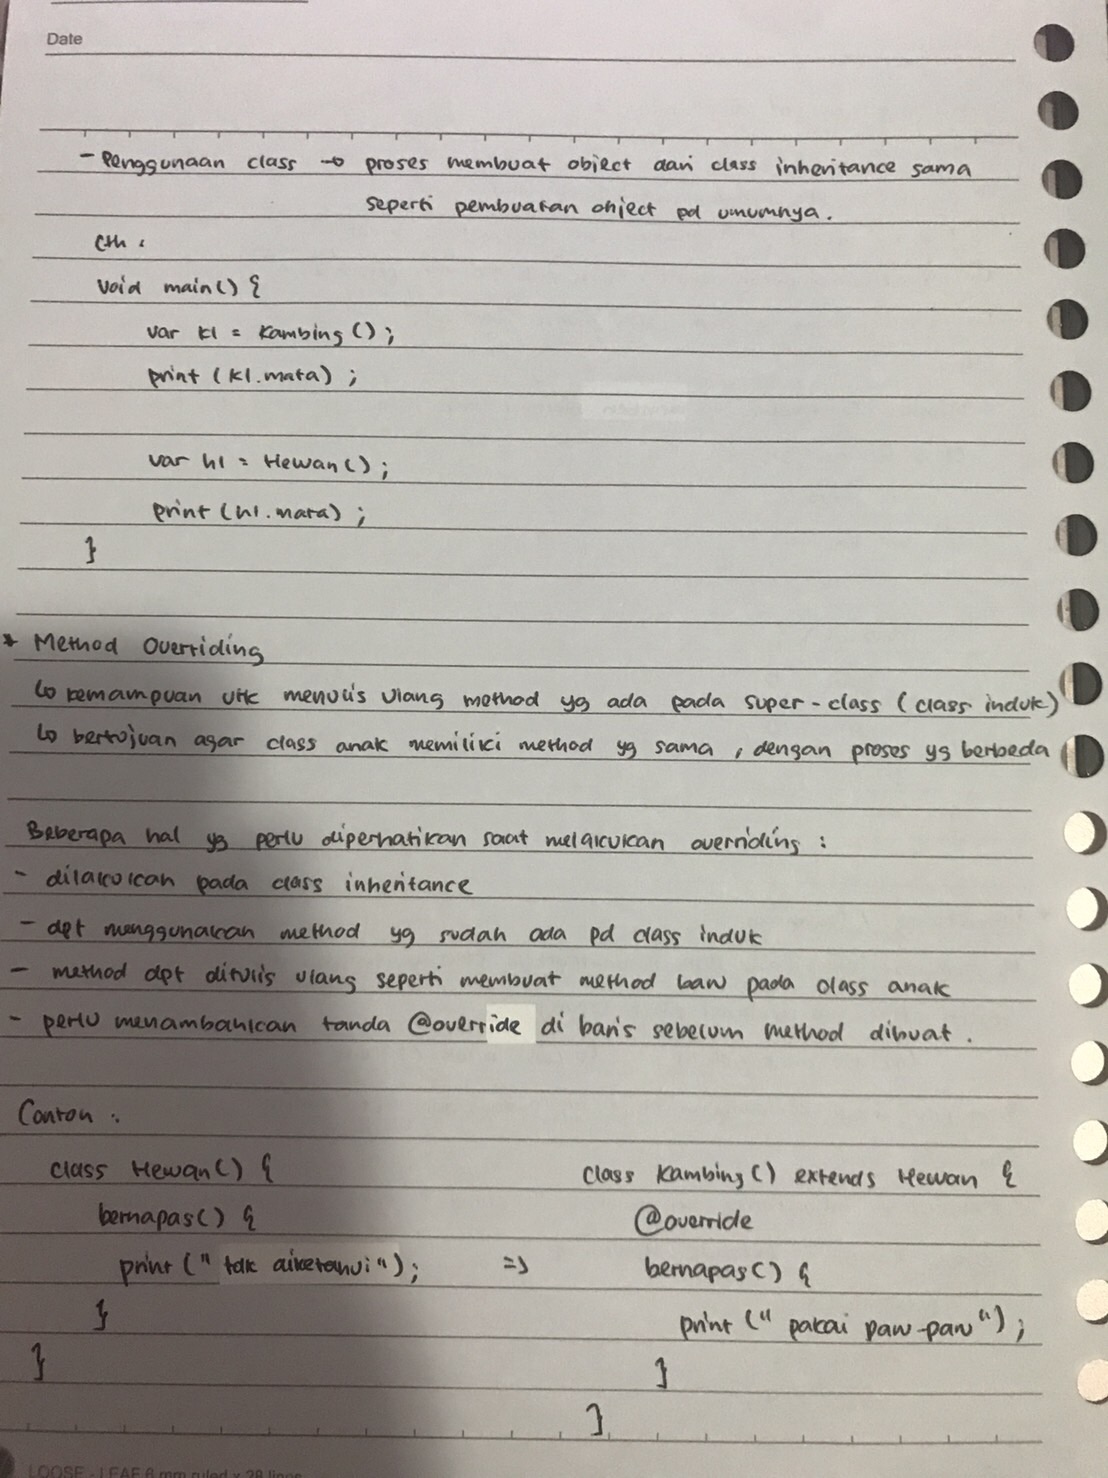 Date
- Penggunaan class → proses membuat object dari class inheritance sama
seperti pembuatan object pd umumnya.
Cth :
void main() {
var k1 = Kambing();
print (k1.mata);
var h1 = Hewan();
print (h1.mata);
}
* Method Overriding
↳ kemampuan utk menulis ulang method yg ada pada super-class (class induk)
↳ bertujuan agar class anak memiliki method yg sama, dengan proses yg berbeda
Beberapa hal yg perlu diperhatikan saat melakukan overriding :
- dilakukan pada class inheritance
- dpt menggunakan method yg sudah ada pd class induk
- method dpt ditulis ulang seperti membuat method baru pada class anak
- perlu menambahkan tanda @override di baris sebelum method dibuat.
Contoh :
class Hewan() {
bernapas() {
print (" tdk diketahui");
}
}
=>
class Kambing() extends Hewan {
@override
bernapas() {
print (" pakai paru-paru");
}
}
LOOSE-LEAF 6 mm ruled x 38 lines